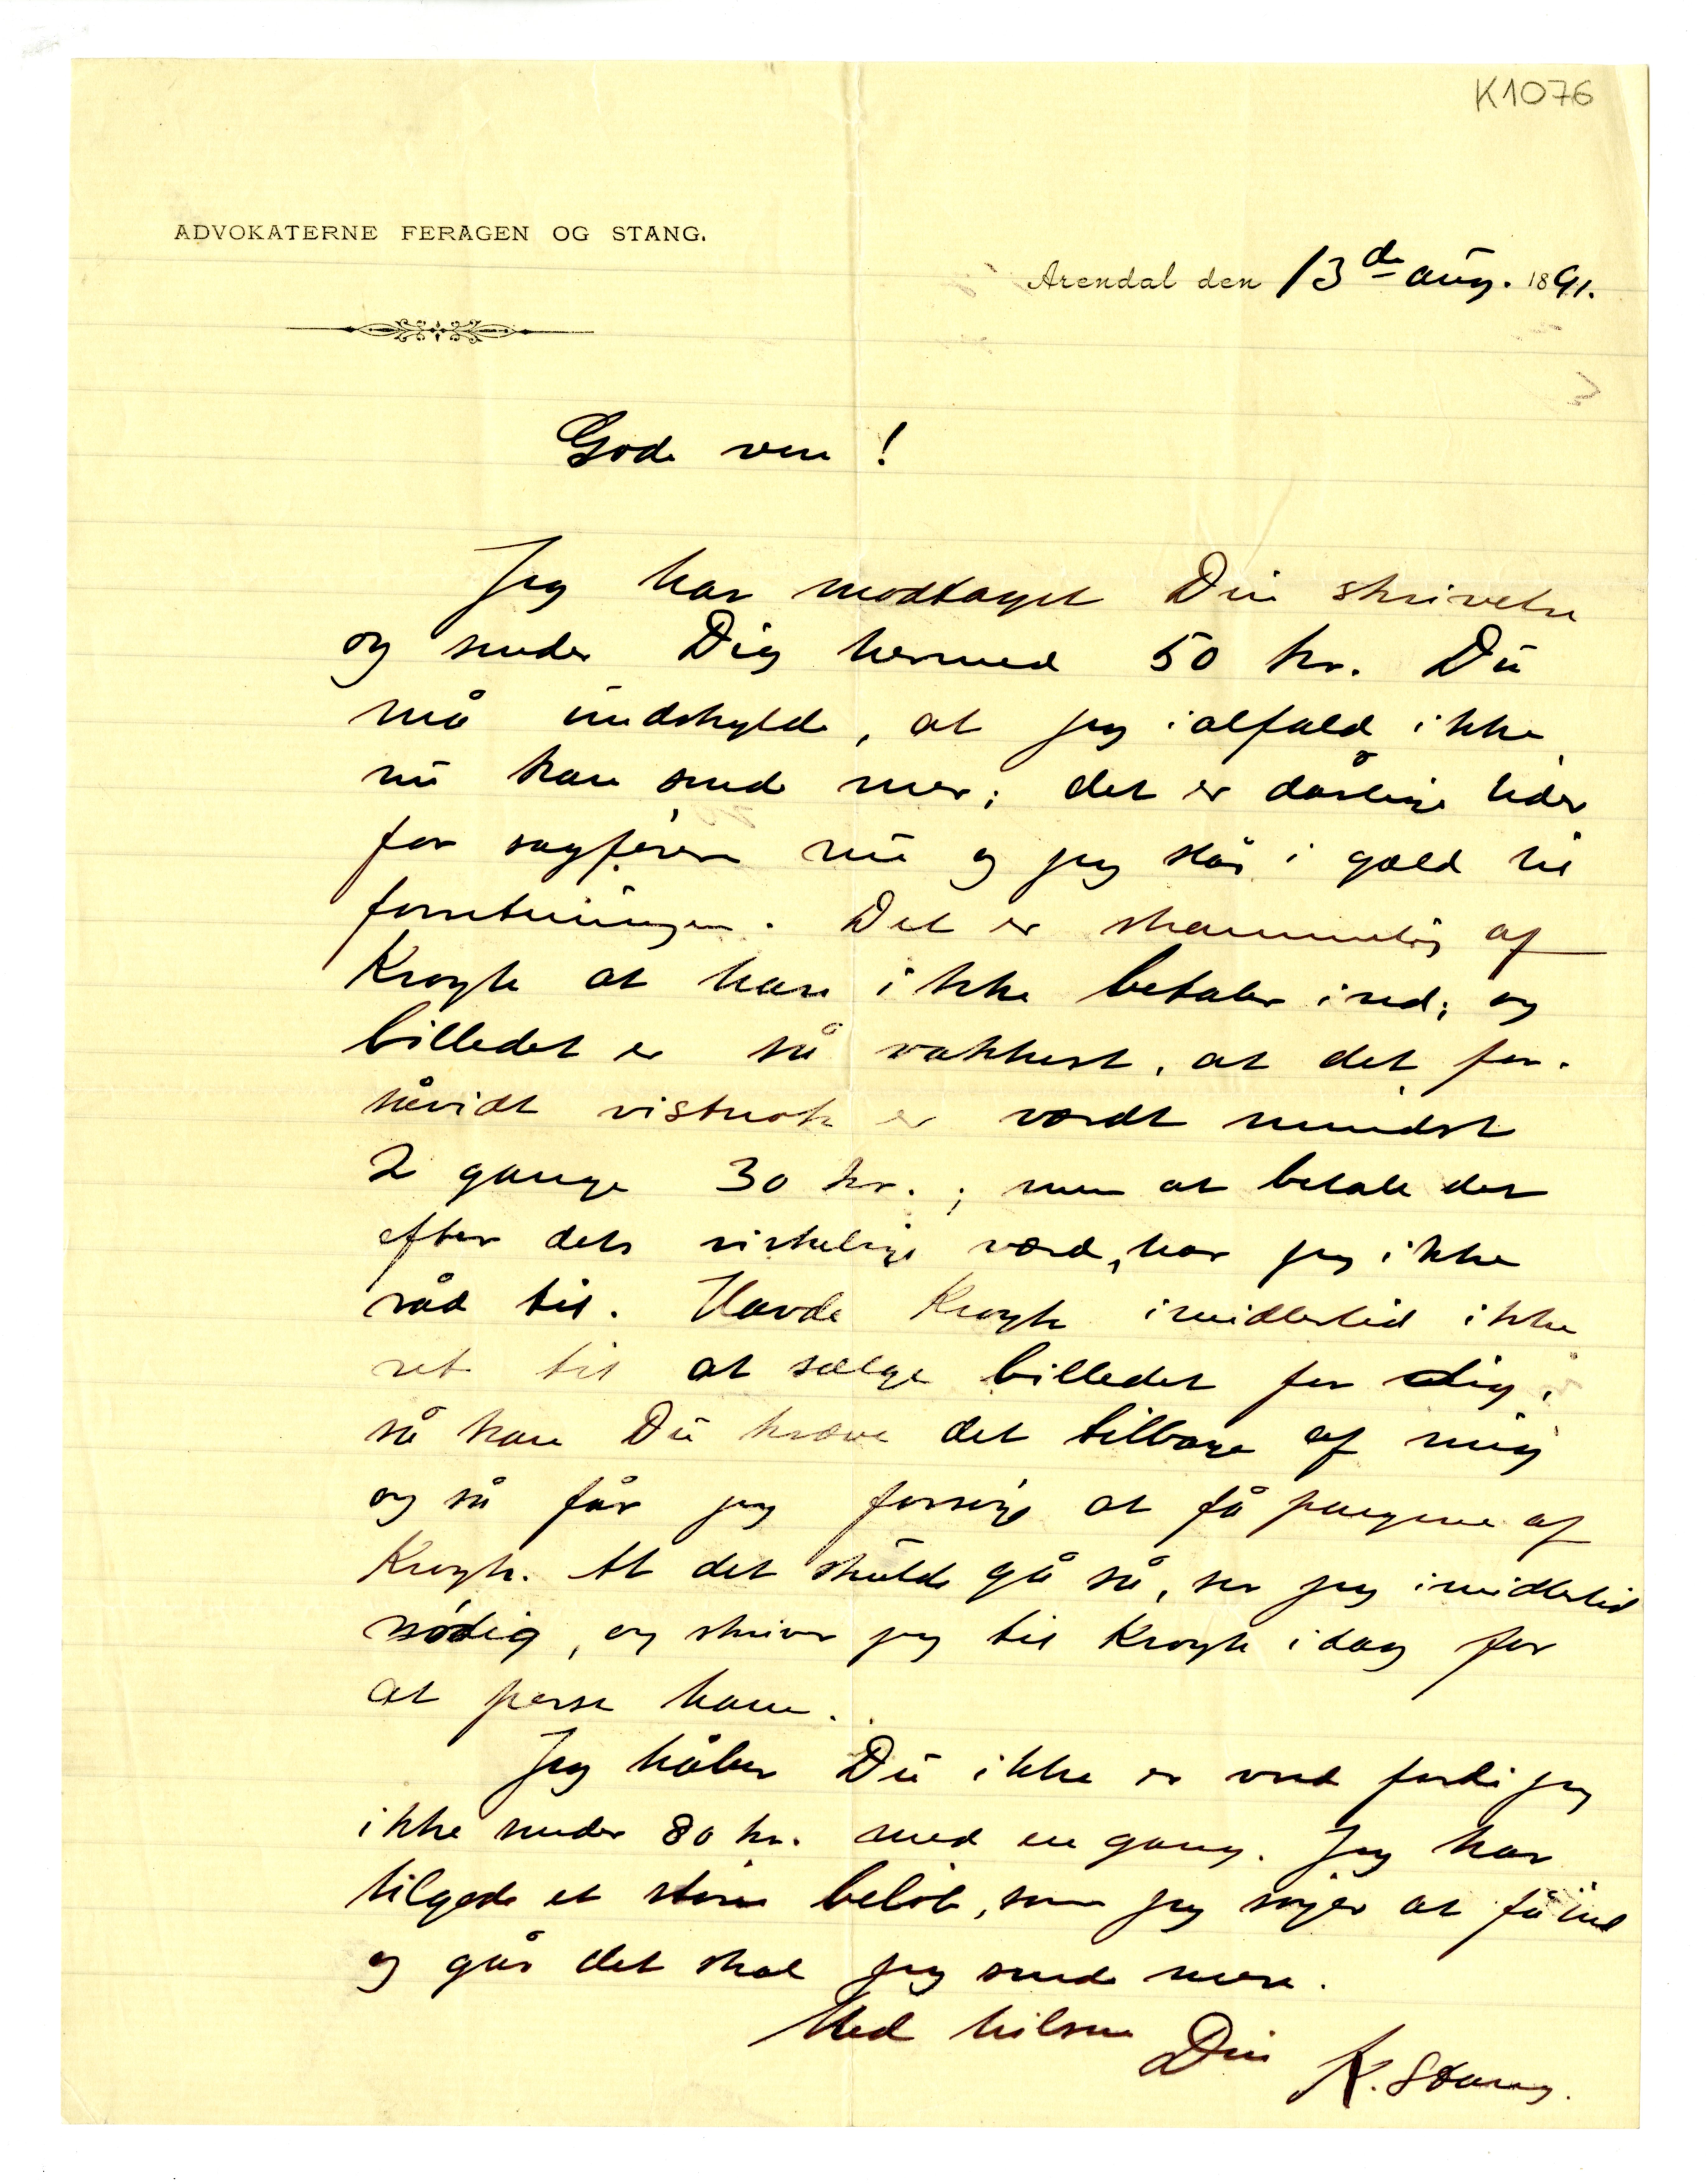 K1076
ADVOKATERNE FERAGEN OG STANG.
Arendal den 13de aug. 1891.
Gode ven!
Jeg har modtaget Din skrivelse
og sender Dig hermed 50 kr. Du
må undskylde, at jeg ialfald ikke
nu kan sende mer; det er dårlige tider
for sagførere nu og jeg står i gæld til
forretningen. Det er skammelig af
Krogh at han ikke betaler ind; og
billedet er så vakkert, at det for-
såvidt vistnok er værdt mindst
2 gange 30 kr.; men at betale det
efter dets virkelige værd, har jeg ikke
råd til. Havde Krogh imidlertid ikke
ret til at sælge billedet for dig,
så kan Du kræve det tilbage af mig
og så får jeg forsøge at få pengene af
Krogh. At det skulde gå så, ser jeg imidlertid
nødig, og skriver jeg til Krogh idag for
at presse ham.
Jeg håber Du ikke er vred fordi jeg
ikke sender 80 kr. med en gang. Jeg har
tilgode et større beløb, som jeg søger at få ind
og går det skal jeg sende mere.
Med hilsen Din K. Stang.